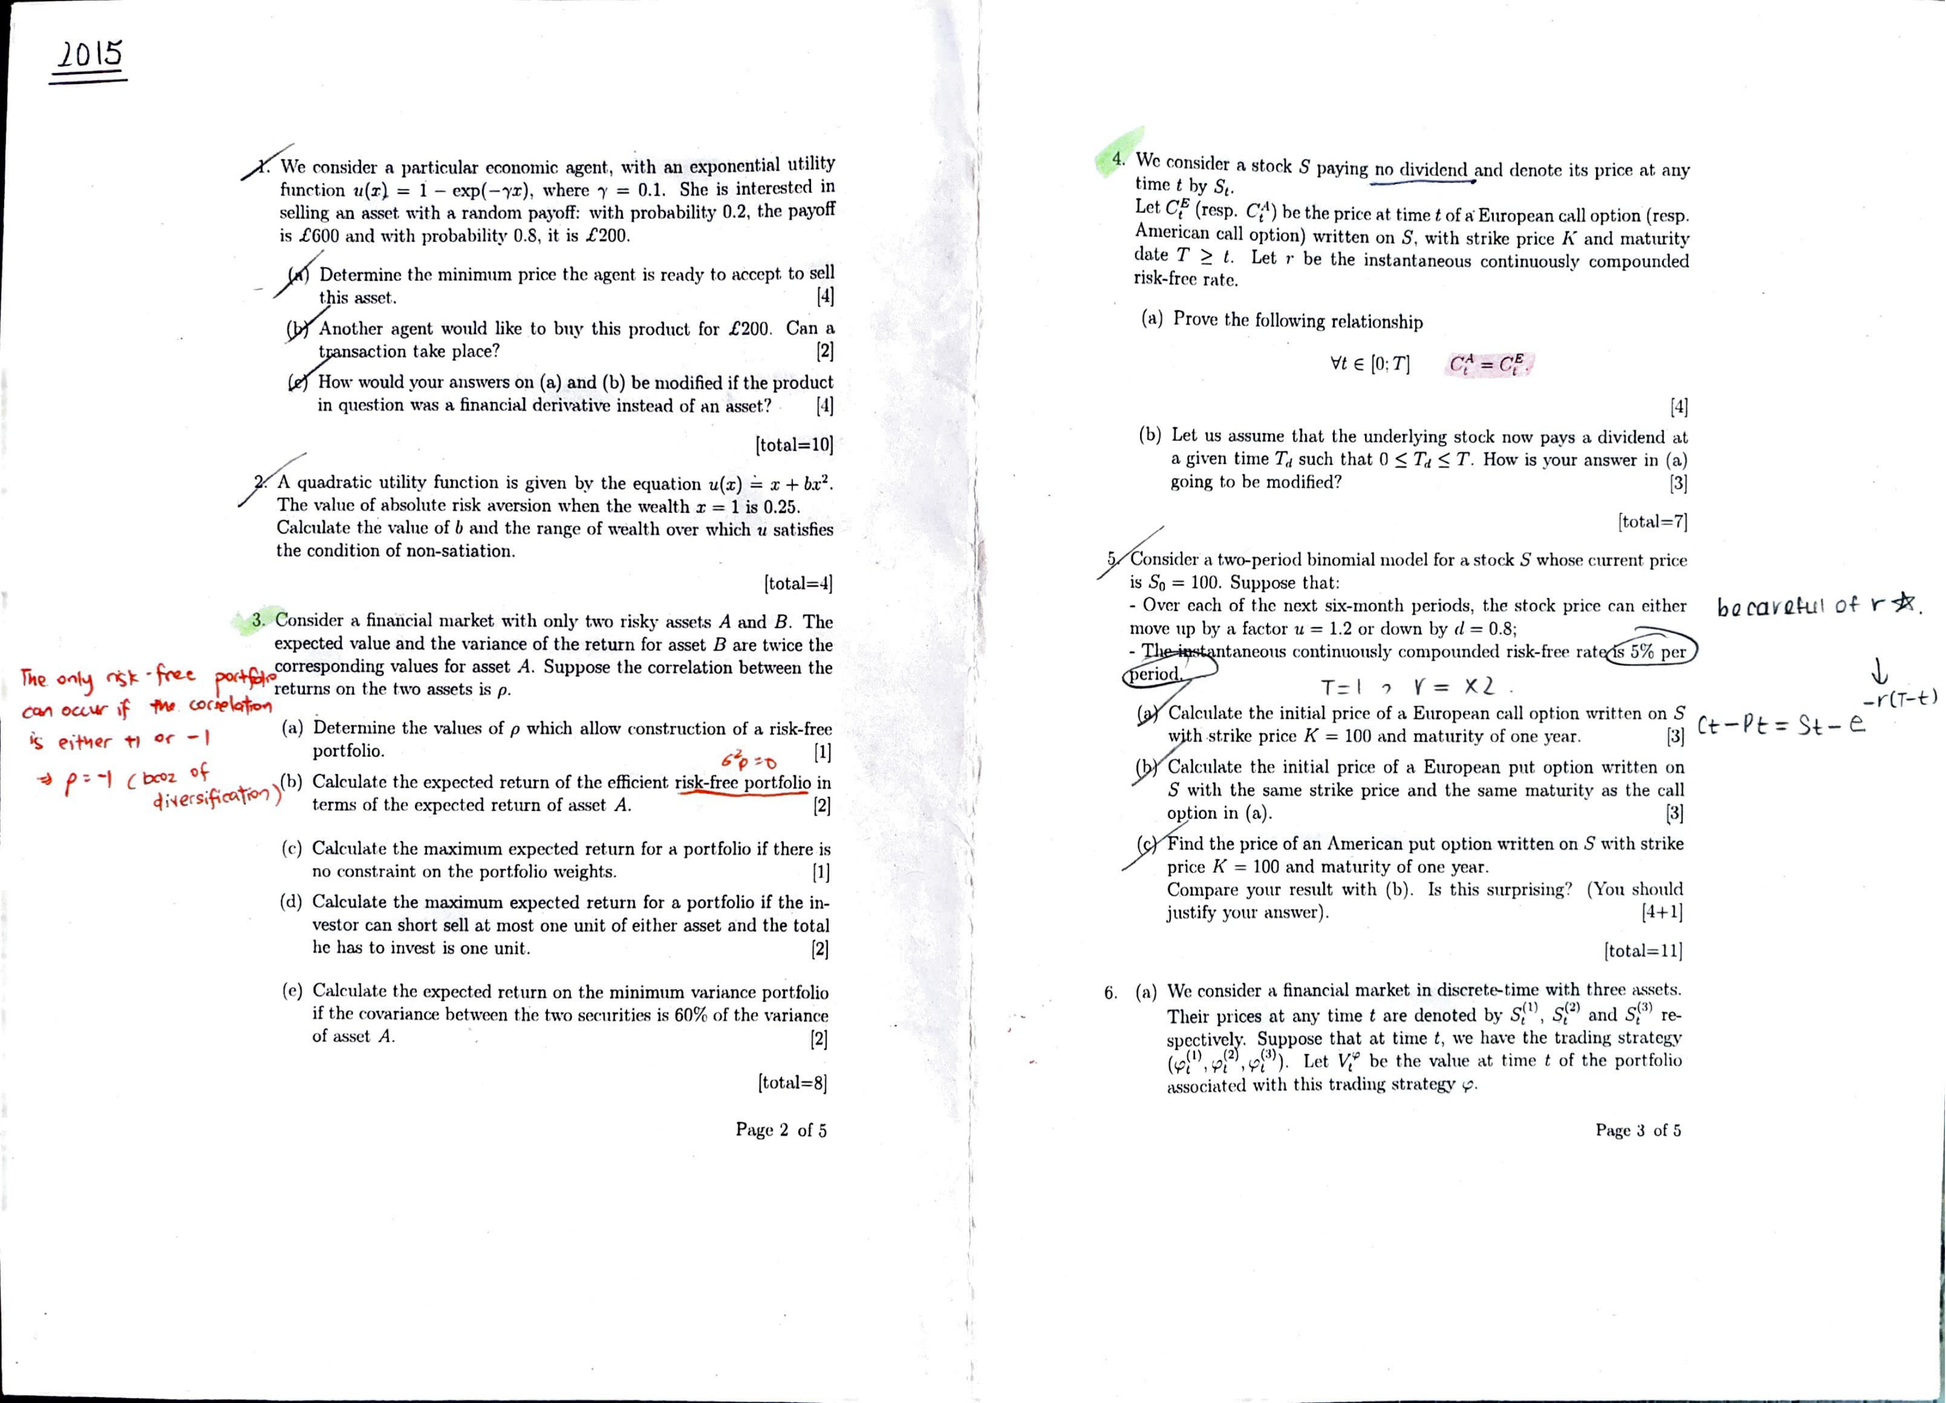 2015
1. We consider a particular economic agent, with an exponential utility
function u(x) = 1 − exp(−γx), where γ = 0.1. She is interested in
selling an asset with a random payoff: with probability 0.2, the payoff
is £600 and with probability 0.8, it is £200.
(a) Determine the minimum price the agent is ready to accept to sell
this asset. [4]
(b) Another agent would like to buy this product for £200. Can a
transaction take place? [2]
(c) How would your answers on (a) and (b) be modified if the product
in question was a financial derivative instead of an asset? [4]
[total=10]
2. A quadratic utility function is given by the equation u(x) = x + bx².
The value of absolute risk aversion when the wealth x = 1 is 0.25.
Calculate the value of b and the range of wealth over which u satisfies
the condition of non-satiation.
[total=4]
3. Consider a financial market with only two risky assets A and B. The
expected value and the variance of the return for asset B are twice the
corresponding values for asset A. Suppose the correlation between the
returns on the two assets is ρ.
The only risk-free portfolio
can occur if the correlation
is either +1 or -1
⇒ ρ = -1 ( bcoz of
diversification)
(a) Determine the values of ρ which allow construction of a risk-free
portfolio. [1]
σ²p = 0
(b) Calculate the expected return of the efficient risk-free portfolio in
terms of the expected return of asset A. [2]
(c) Calculate the maximum expected return for a portfolio if there is
no constraint on the portfolio weights. [1]
(d) Calculate the maximum expected return for a portfolio if the in-
vestor can short sell at most one unit of either asset and the total
he has to invest is one unit. [2]
(e) Calculate the expected return on the minimum variance portfolio
if the covariance between the two securities is 60% of the variance
of asset A. [2]
[total=8]
Page 2 of 5
4. We consider a stock S paying no dividend and denote its price at any
time t by Sₜ.
Let Cₜᴱ (resp. Cₜᴬ) be the price at time t of a European call option (resp.
American call option) written on S, with strike price K and maturity
date T ≥ t. Let r be the instantaneous continuously compounded
risk-free rate.
(a) Prove the following relationship
∀t ∈ [0; T] Cₜᴬ = Cₜᴱ.
[4]
(b) Let us assume that the underlying stock now pays a dividend at
a given time T_d such that 0 ≤ T_d ≤ T. How is your answer in (a)
going to be modified? [3]
[total=7]
5. Consider a two-period binomial model for a stock S whose current price
is S₀ = 100. Suppose that:
- Over each of the next six-month periods, the stock price can either
move up by a factor u = 1.2 or down by d = 0.8;
- The instantaneous continuously compounded risk-free rate is 5% per
period.
be careful of r ☆.
T=1 , r = x2 .
↓
Ct − Pt = St − e^{-r(T-t)}
(a) Calculate the initial price of a European call option written on S
with strike price K = 100 and maturity of one year. [3]
(b) Calculate the initial price of a European put option written on
S with the same strike price and the same maturity as the call
option in (a). [3]
(c) Find the price of an American put option written on S with strike
price K = 100 and maturity of one year.
Compare your result with (b). Is this surprising? (You should
justify your answer). [4+1]
[total=11]
6. (a) We consider a financial market in discrete-time with three assets.
Their prices at any time t are denoted by Sₜ⁽¹⁾, Sₜ⁽²⁾ and Sₜ⁽³⁾ re-
spectively. Suppose that at time t, we have the trading strategy
(φₜ⁽¹⁾, φₜ⁽²⁾, φₜ⁽³⁾). Let Vₜᵠ be the value at time t of the portfolio
associated with this trading strategy φ.
Page 3 of 5